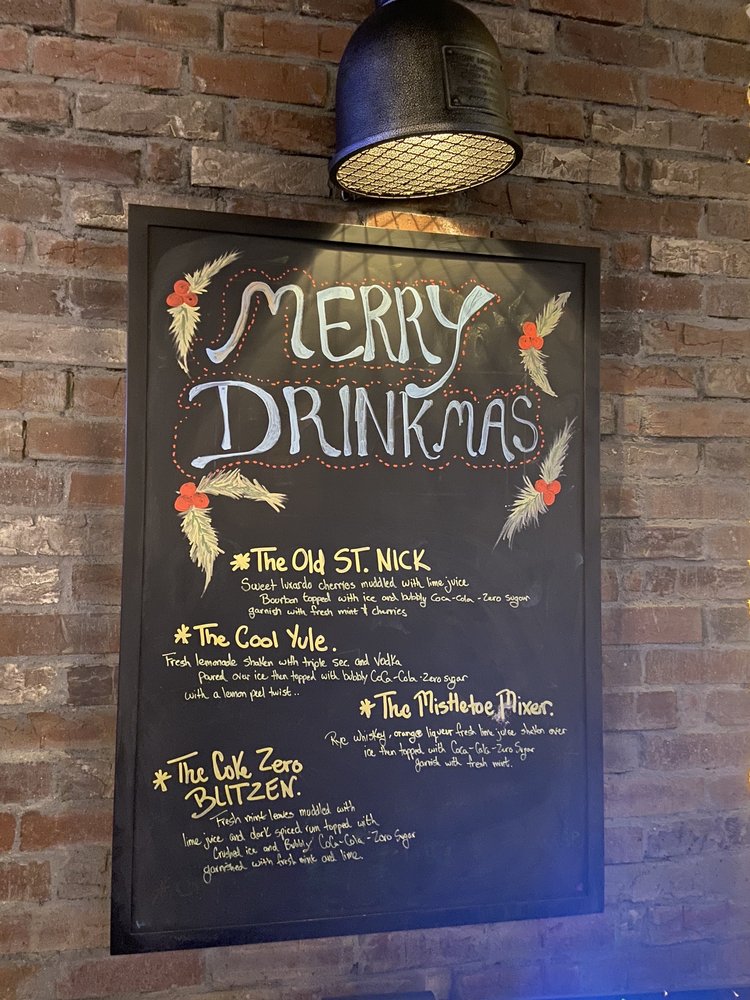 MERRY
DRINKMAS
*The Old ST. NICK
Sweet luxardo cherries muddled with lime juice
Bourbon topped with ice and bubbly Coca-Cola-Zero Sugar
garnish with fresh mint & cherries
*The Cool Yule.
Fresh lemonade shaken with triple sec and Vodka
Poured over ice then topped with bubbly CoCa-Cola-Zero sugar
with a lemon peel twist..
*The Mistletoe Mixer.
Rye whiskey, orange liqueur fresh lime juice shaken over
ice then topped with Coca-Cola-Zero Sugar
garnish with fresh mint.
*The Coke Zero
BLITZEN.
Fresh mint leaves muddled with
lime juice and dark spiced rum topped with
Crushed ice and Bubbly CoCa-Cola-Zero Sugar
garnished with fresh mint and lime.